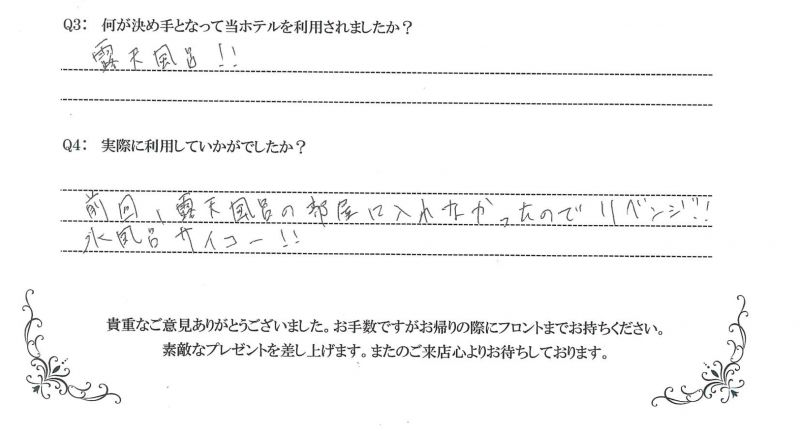 Q3: 何が決め手となって当ホテルを利用されましたか？
露天風呂!!
Q4: 実際に利用していかがでしたか？
前回、露天風呂の部屋に入れなかったのでリベンジ!!
水風呂サイコー!!
貴重なご意見ありがとうございました。お手数ですがお帰りの際にフロントまでお持ちください。
素敵なプレゼントを差し上げます。またのご来店心よりお待ちしております。